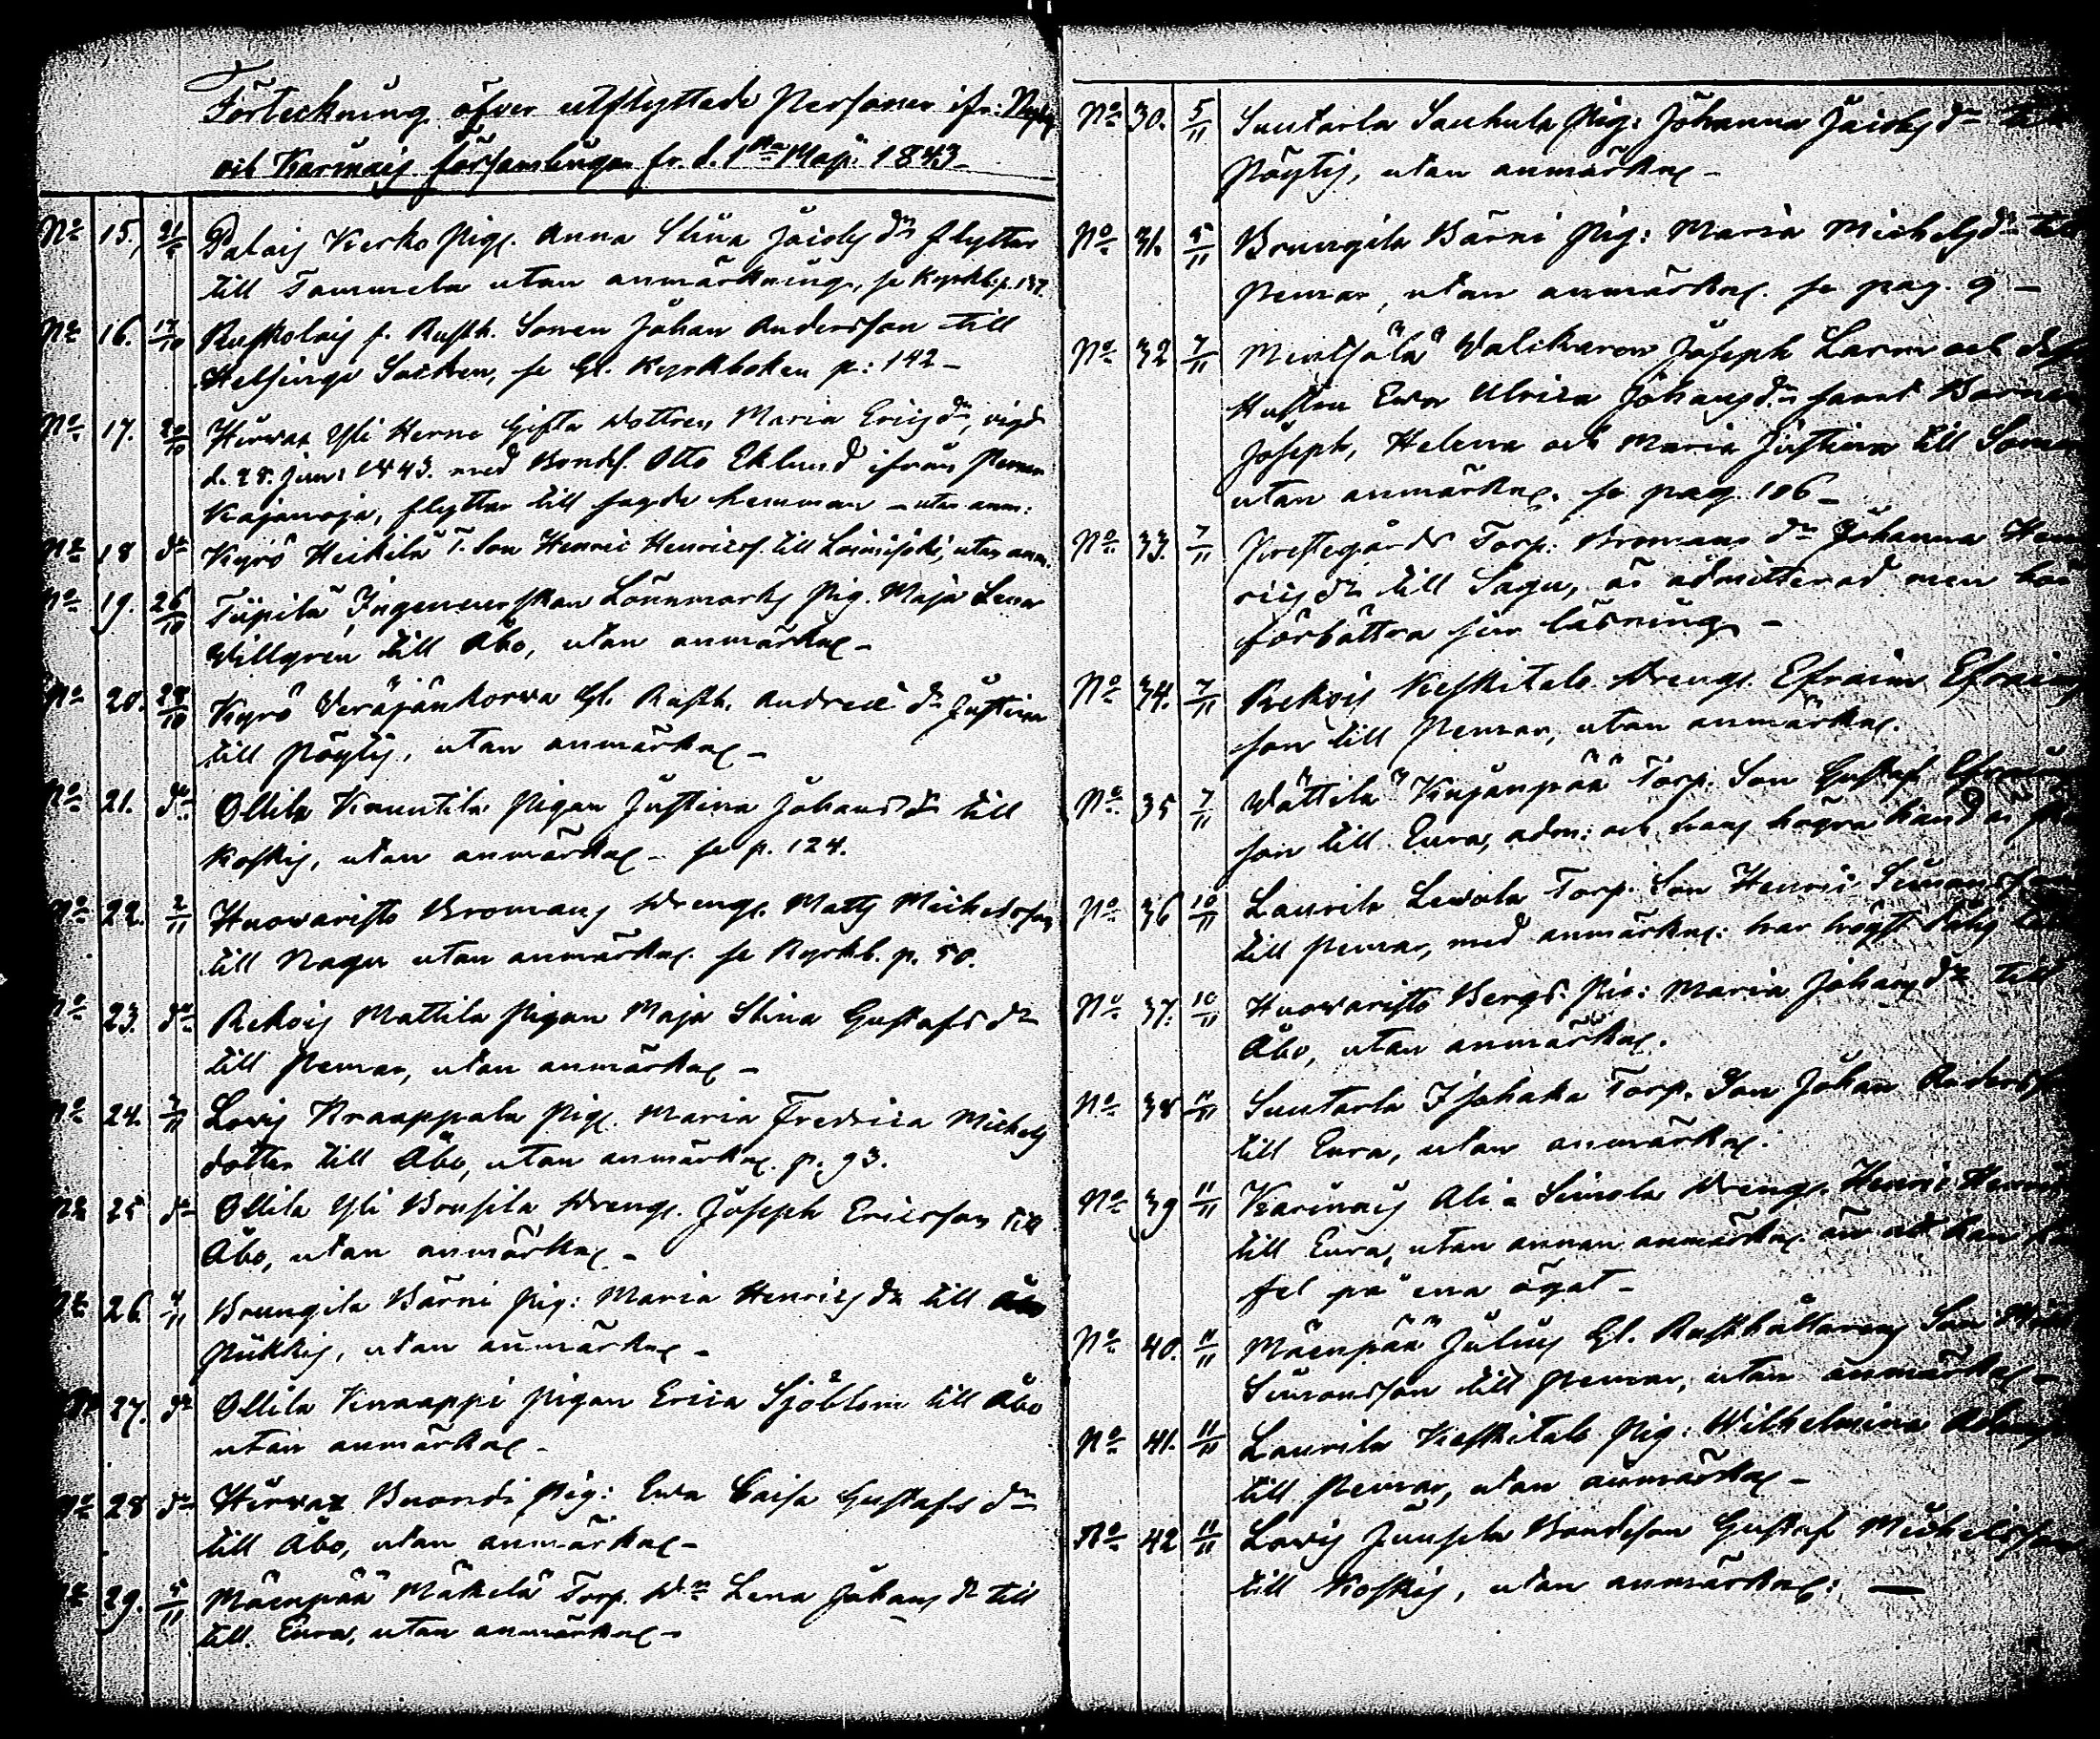 Förteckning öfver utflyttade Personer ifr:
och Karinais församlingar fr. d. 1sta Maji 1843
No 15. 21/ Palais Kierko Pig. Anna Stina Jacobs dr flyttar
till Tammela utan anmärkning, se Kyrkb. p. 137.
No 16. 17/10 Ruskolais f. Rusth. Sonen Johan Andersson till
Helsinge Socken, se Gl. Kyrkboken p: 142 -
No 17. 20/10 Hirvas Yli Herne Gifta Dottren Maria Erics dr, vigd
d. 28. Juni 1843. med Bondes. Otto Eklund ifrån Pemar
Kajanoja, flyttar till sagde hemman - utan anm:
No 18 do Kyrö Heikilä T. Son Henric Henrics. till Loimijoki, utan anm.
No 19. 26/10 Tiipilä Ingeneurskan Lönnmarks Pig. Maja Lena
Willgren till Åbo, utan anmärkng -
No 20. 28/10 Kyrö Veräjänkorva Gl. Rusth. Andreæ dr Justina
till Pöytis, utan anmärkng -
No 21. do Ollila Knuutila Pigan Justina Johans dr till
Koskis, utan anmärkng - se p. 124.
No 22. 2/11 Huovaristo Bromans Dreng. Matts Michelsson
till Nagu utan anmärkng. se Kyrkb. p. 50.
No 23. do Rekois Mattila Pigan Maja Stina Gustafs dr
till Pemar, utan anmärkng -
No 24. 2/11 Lovis Knaappala Pig. Maria Fredrica Michels
dotter till Åbo, utan anmärkng. p. 93.
No 25 do Ollila Yli Brusila Dreng. Joseph Ericsson till
Åbo, utan anmärkng -
No 26. 4/11 Brungila Bärni Pig: Maria Henrics dr till
Piikkis, utan anmärkng -
No 27. do Ollila Knaappi Pigan Erica Sjöblom till Åbo
utan anmärkng -
No 28 do Hirvas Buondi Pig: Ewa Caisa Gustafs dr
till Åbo, utan anmärkng -
No 29. 5/11 Mäenpää Mäkelä Torp. Dr Lena Johans dr till
till Eura, utan anmärkng -
No 30. 5/11 Suutarla Sauhula Pig: Johanna Jacobs dr till
Pöytis, utan anmärkng -
No 31. 5/11 Brungila Bärni Pig: Maria Michels dr till
Pemar, utan anmärkng. se pag. 9 -
No 32 7/11 Mustjälä Valckaren Joseph Larm och dess
Hustru Ewa Ulrica Johans dr samt Barnen
Joseph, Helena och Maria Justina till
utan anmärkng. se pag. 106 -
No 33. 7/11 Prestegårds Torp: Bromans dr Johanna Hen
rics dr till Sagu, är admitterad men bör
förbättra sin läsning -
No 34. 7/11 Rekois Keskitalo Dreng. Efraim Efraims
son till Pemar, utan anmärkng.
No 35 7/11 Wättilä Kujanpää Torp. Son Gustaf
son till Eura, adm: och hans högra hand är
No 36 10/11 Laurila Levola Torp. Son Henric Simonsson
till Pemar, med anmärkng: har högst dålig
No 37. 10/11 Huovaristo Bergs. Pig: Maria Johans dr till
Åbo, utan anmärkng.
No 38 11/11 Suutarla Isohaka Torp. Son Johan Anderss
till Eura, utan anmärkng.
No 39 11/11 Karinais Ali Simola Dreng. Henric
till Eura, utan annan anmärkng. än att han
fel på ena ögat -
No 40. 11/11 Mäenpää Julius Gl. Rusthållarens Son
Simonsson till Pemar, utan anmärkng -
No 41. 11/11 Laurila Keskitalo Pig: Wilhelmina
till Pemar, utan anmärkng -
No 42 11/11 Lovis Juusela Bondeson Gustaf Michelsson
till Koskis, utan anmärkng: -